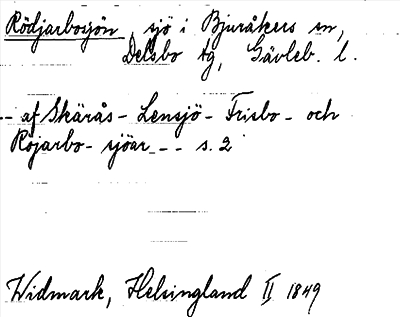 Rödjarbosjön, sjö i Bjuråkers sn,
Delsbo tg, Gävleb. l.
-- af Skärås- Lensjö- Frisbo- och
Röjarbo- sjöar --- s. 2
Widmark, Helsingland II 1849